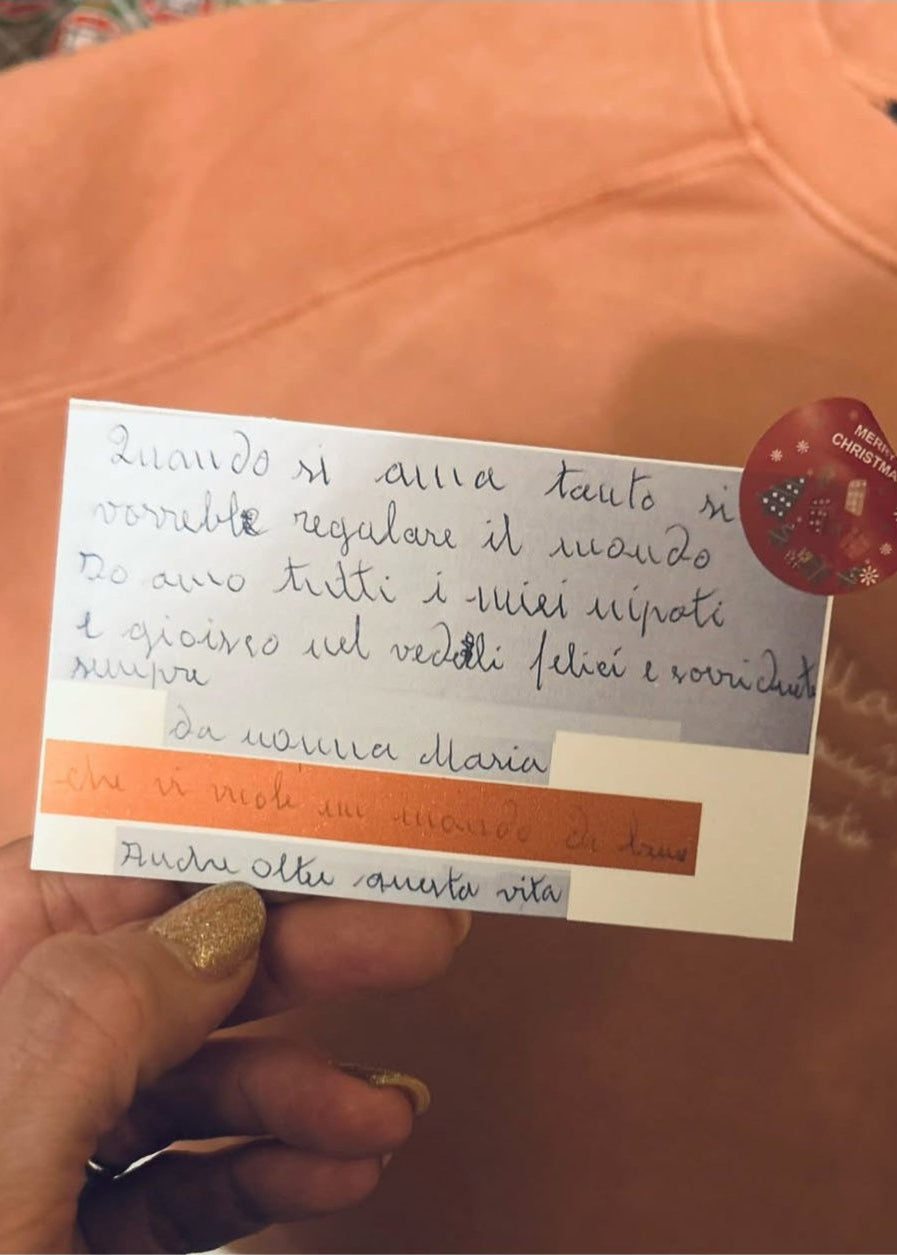 Quando si ama tanto si
vorrebbe regalare il mondo
Io amo tutti i miei nipoti
e gioisco nel vederli felici e sorridenti
sempre
da nonna Maria
che vi vuole un mondo di bene
Anche oltre questa vita
MERRY
CHRISTMA